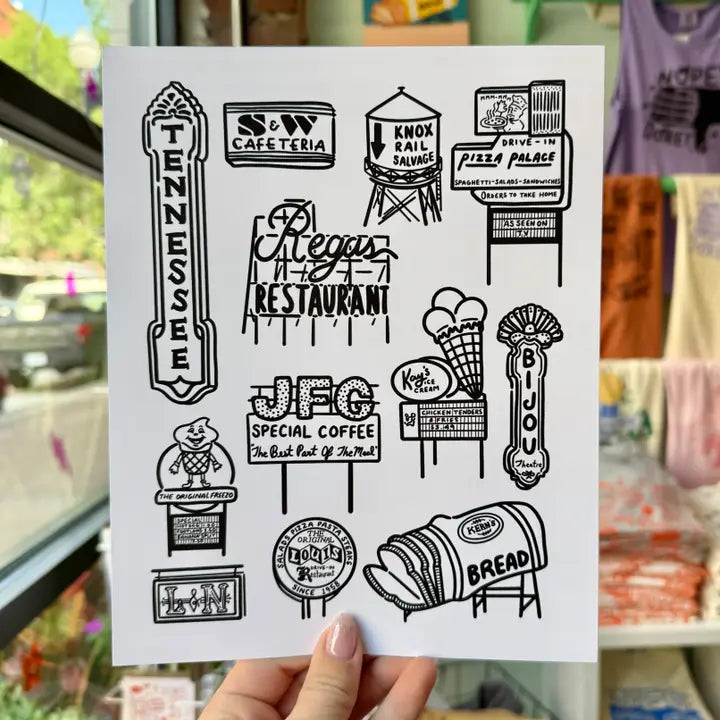 TENNESSEE
S&W
CAFETERIA
KNOX
RAIL
SALVAGE
MMM-MM
DRIVE-IN
PIZZA PALACE
SPAGHETTI-SALADS-SANDWICHES
ORDERS TO TAKE HOME
AS SEEN ON
T.V.
Regas
RESTAURANT
Kay's
ICE
CREAM
CHICKEN TENDERS
& FRIES
BIJOU
Theatre
JFG
SPECIAL COFFEE
"The Best Part Of The Meal"
THE ORIGINAL FREEZO
SALADS PIZZA PASTA STEAKS
THE
ORIGINAL
LOUIS'
DRIVE-IN
Restaurant
SINCE 1958
KERN'S
BREAD
L&N
NOPE